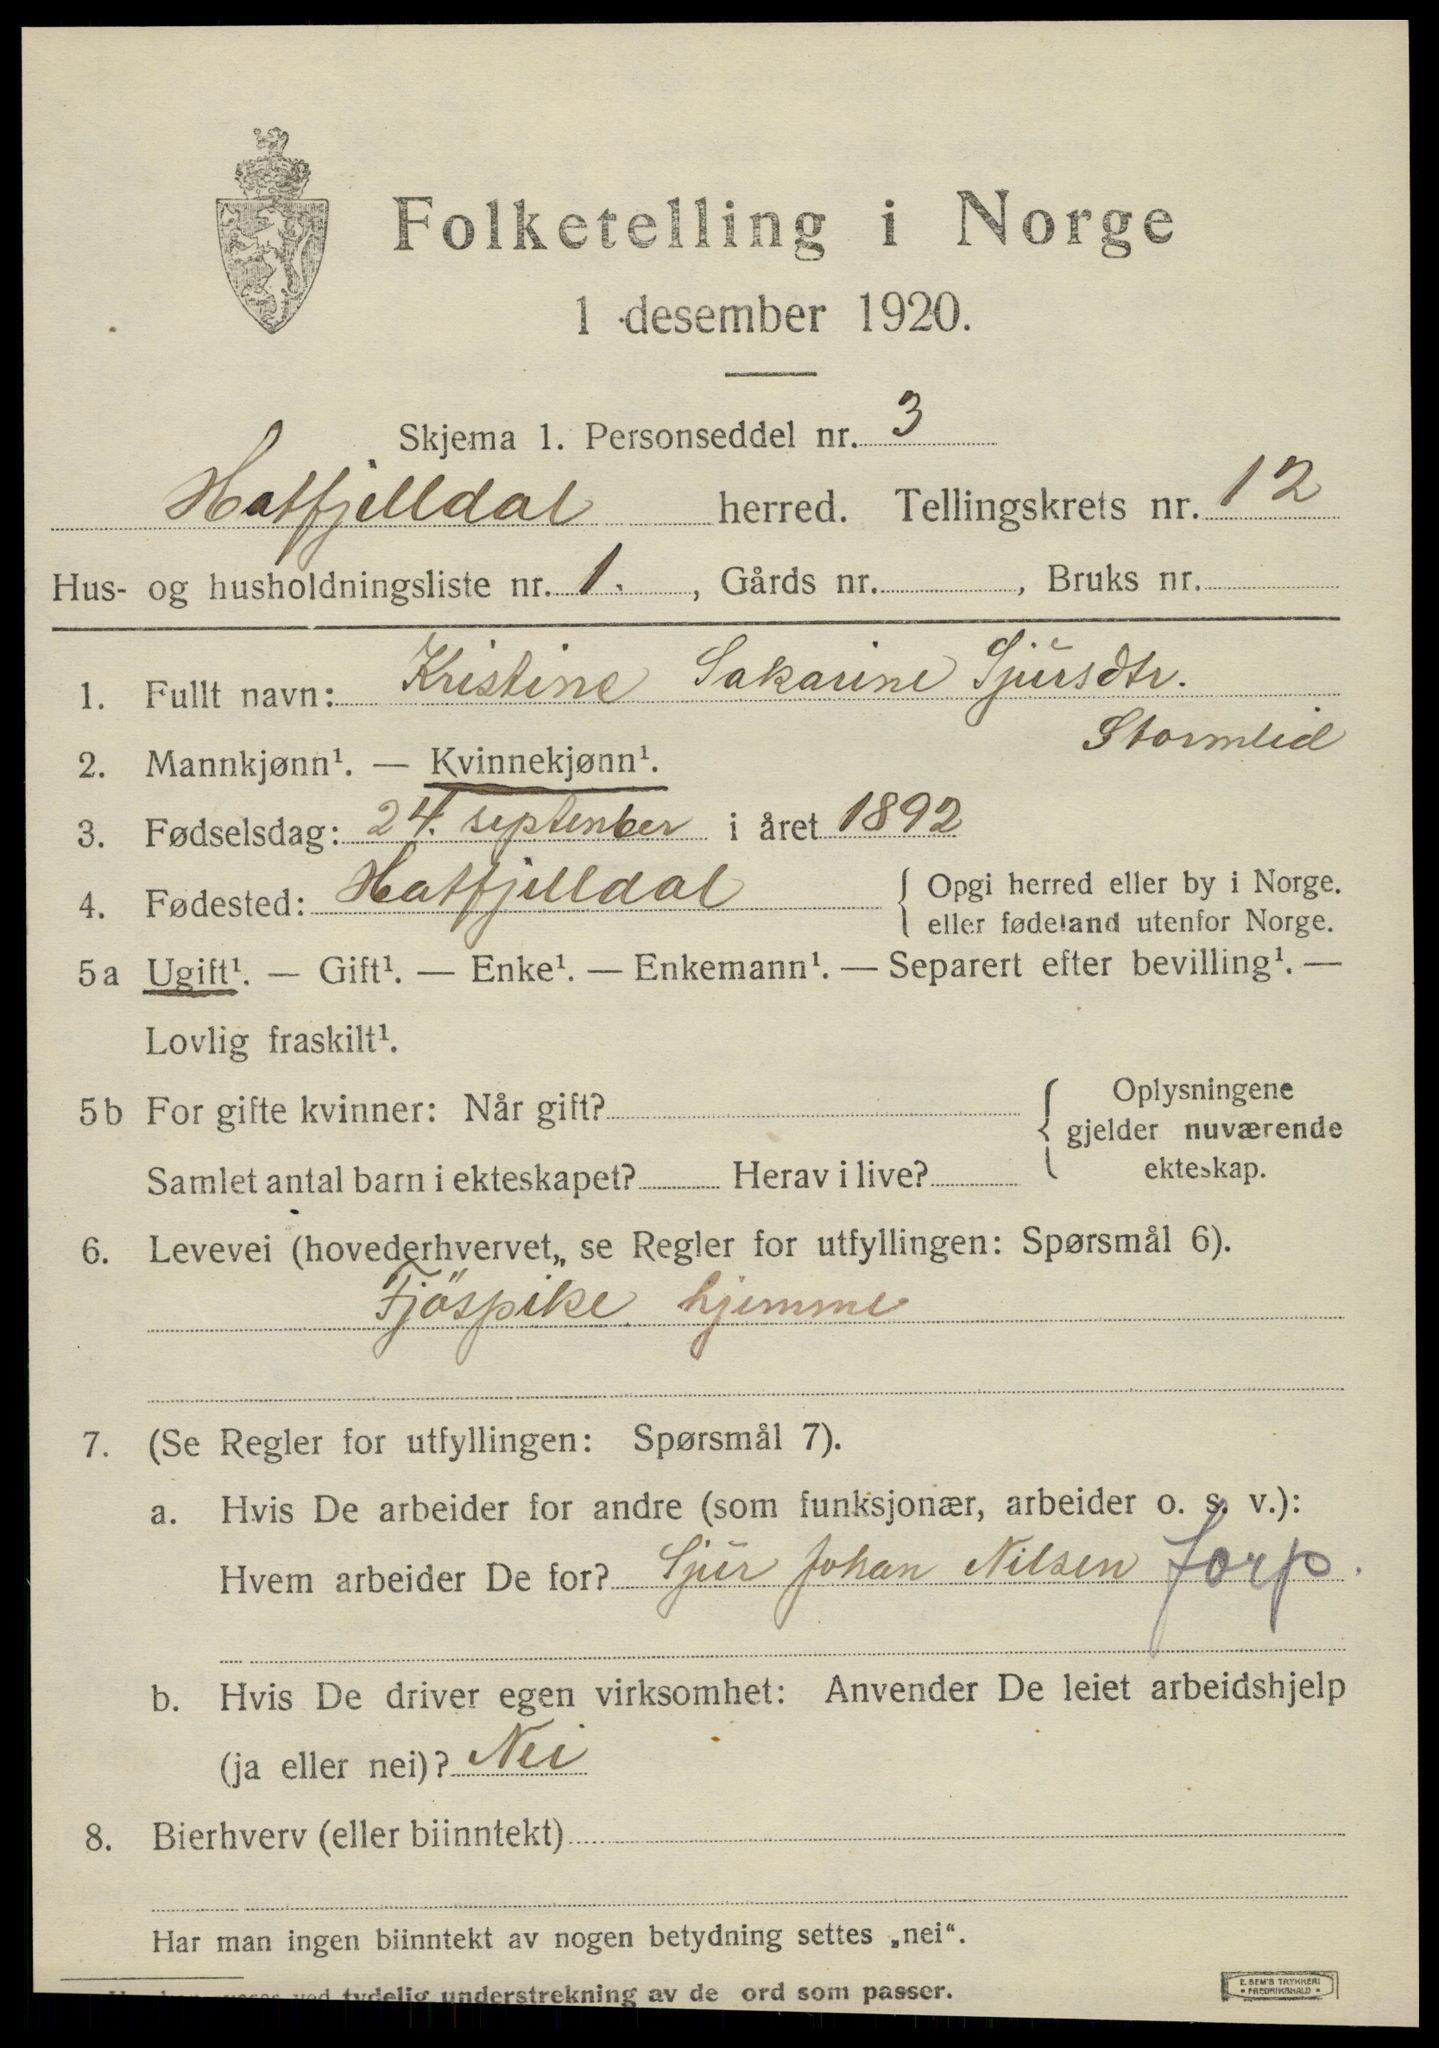 Folketelling i Norge
1 desember 1920.
Skjema 1. Personseddel nr. 3
Hatfjelldal herred. Tellingskrets nr. 12
Hus- og husholdningsliste nr. 1. , Gårds nr. , Bruks nr.
1. Fullt navn: Kristine Sakarine Sjürsdtr.
Stormlid
2. Mannkjønn¹. — Kvinnekjønn¹.
3. Fødselsdag: 24. september i året 1892
4. Fødested: Hatfjelldal { Opgi herred eller by i Norge.
eller fødeland utenfor Norge.
5a Ugift¹. — Gift¹. — Enke¹. — Enkemann¹. — Separert efter bevilling¹. —
Lovlig fraskilt¹.
5b For gifte kvinner: Når gift? { Oplysningene
gjelder nuværende
Samlet antal barn i ekteskapet? Herav i live? ekteskap.
6. Levevei (hovederhvervet„ se Regler for utfyllingen: Spørsmål 6).
Fjöspike hjemme
7. (Se Regler for utfyllingen: Spørsmål 7).
a. Hvis De arbeider for andre (som funksjonær, arbeider o. s. v.):
Hvem arbeider De for? Sjür Johan Nilsen forp.
b. Hvis De driver egen virksomhet: Anvender De leiet arbeidshjelp
(ja eller nei)? Nei
8. Bierhverv (eller biinntekt)
Har man ingen biinntekt av nogen betydning settes „nei“.
ved tydelig understrekning av de ord som passer.
E. SEM'S TRYKKERI
• FREDRIKSHALD •